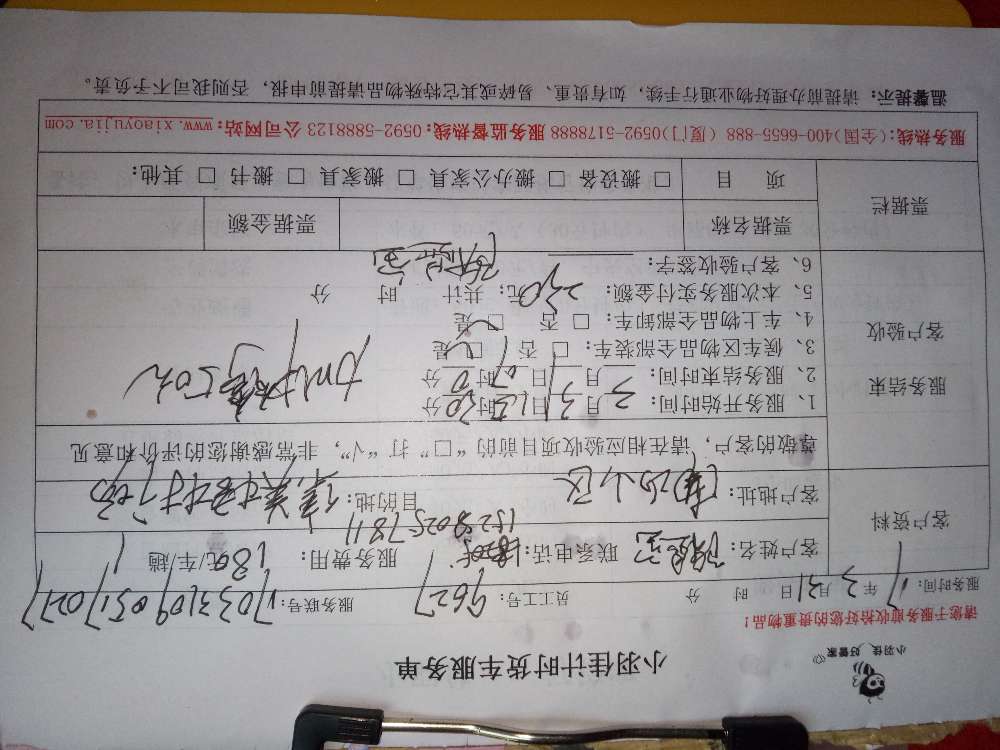 小羽佳 好管家
小羽佳计时货车服务单
请您于服务前收拾好您的贵重物品！
服务时间：17年3月31日 时 分 员工工号：9627 服务联号：
客户资料
客户姓名： 联系电话：15280257811 服务费用：180元/车/趟
客户地址： 目的地：
尊敬的客户，请在相应验收项目前的“□”打“√”，非常感谢您的评价和意见
服务结束
客户验收
1、服务开始时间：3月31日15时30分
2、服务结束时间： 月 日 时 分
3、候车区物品全部装车：□否 □是
4、车上物品全部卸车：□否 □是
5、本次服务实付金额：230元；共计 时 分
6、客户验收签字：
票据栏
票据名称 票据金额
项 目 □搬设备 □搬办公家具 □搬家具 □搬书 □其他：
服务热线：(全国)400-6655-888 (厦门)0592-5178888 服务监督热线：0592-5888123 公司网站：www.xiaoyujia.com
温馨提示：请提前办理好物业通行手续，如有贵重、易碎或其它特殊物品请提前申报，否则我司不予负责。